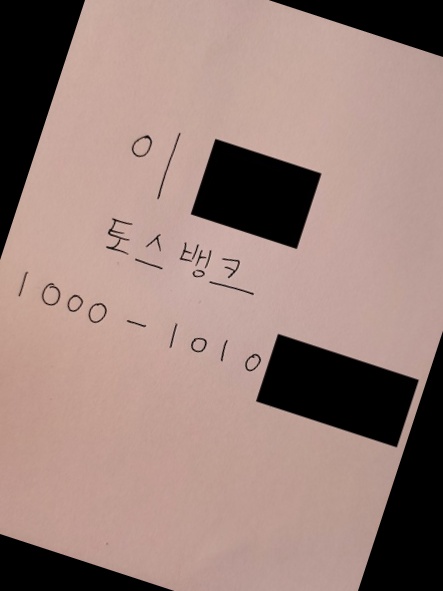 이
토스뱅크
1000-1010